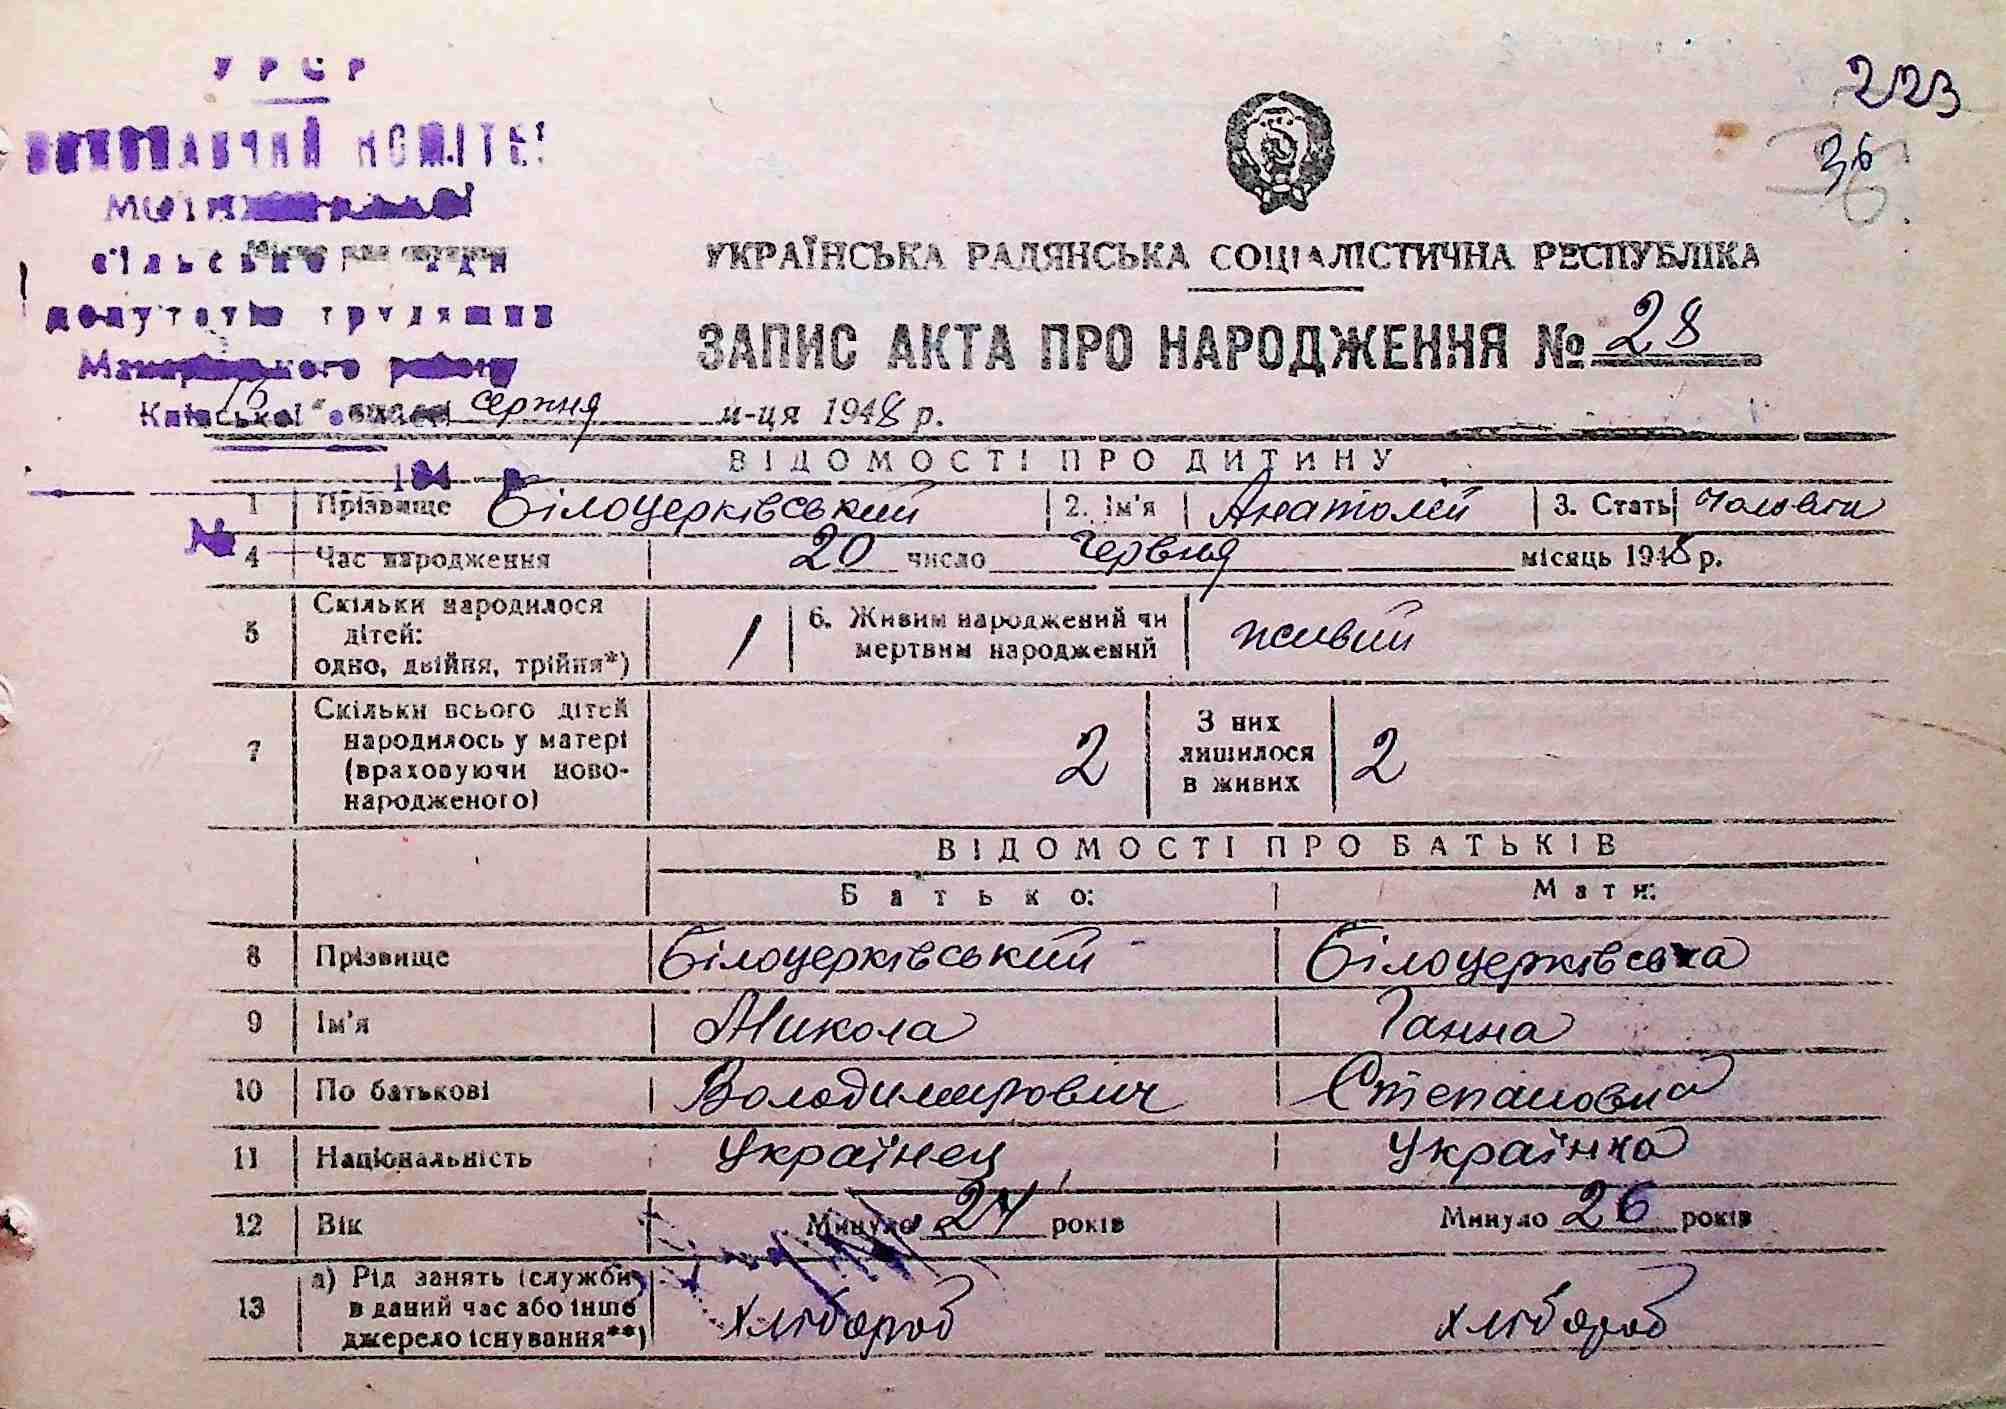 УРСР
223
36
сільсько
депутатів трудящих
Київської
УКРАЇНСЬКА РАДЯНСЬКА СОЦІАЛІСТИЧНА РЕСПУБЛІКА
ЗАПИС АКТА ПРО НАРОДЖЕННЯ № 28
серпня м-ця 1948 р.
194 р.
№
ВІДОМОСТІ ПРО ДИТИНУ
1 Прізвище Білоцерківський 2. Ім'я Анатолій 3. Стать
4 Час народження 20 число червня місяць 1948 р.
5 Скільки народилося дітей: одно, двійня, трійня*) 1 6. Живим народжений чи мертвим народжений живий
7 Скільки всього дітей народилось у матері (враховуючи ново-народженого) 2 З них лишилося в живих 2
ВІДОМОСТІ ПРО БАТЬКІВ
Батько: Мати:
8 Прізвище Білоцерківський Білоцерківська
9 Ім'я Микола Ганна
10 По батькові Володимирович Степановна
11 Національність Українец Українка
12 Вік Минуло 24 років Минуло 26 років
13 а) Рід занять (служби в даний час або інше джерело існування**) хлібороб хлібороб